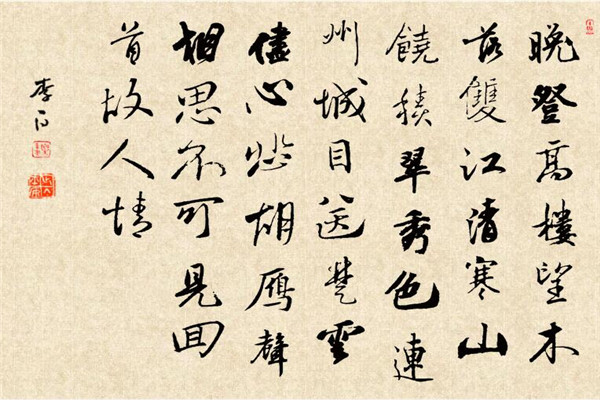 晚登高樓望木
落雙江清寒山
饒積翠秀色連
州城目送楚雲
儘心悲胡鴈聲
相思不可見回
首故人情
李白